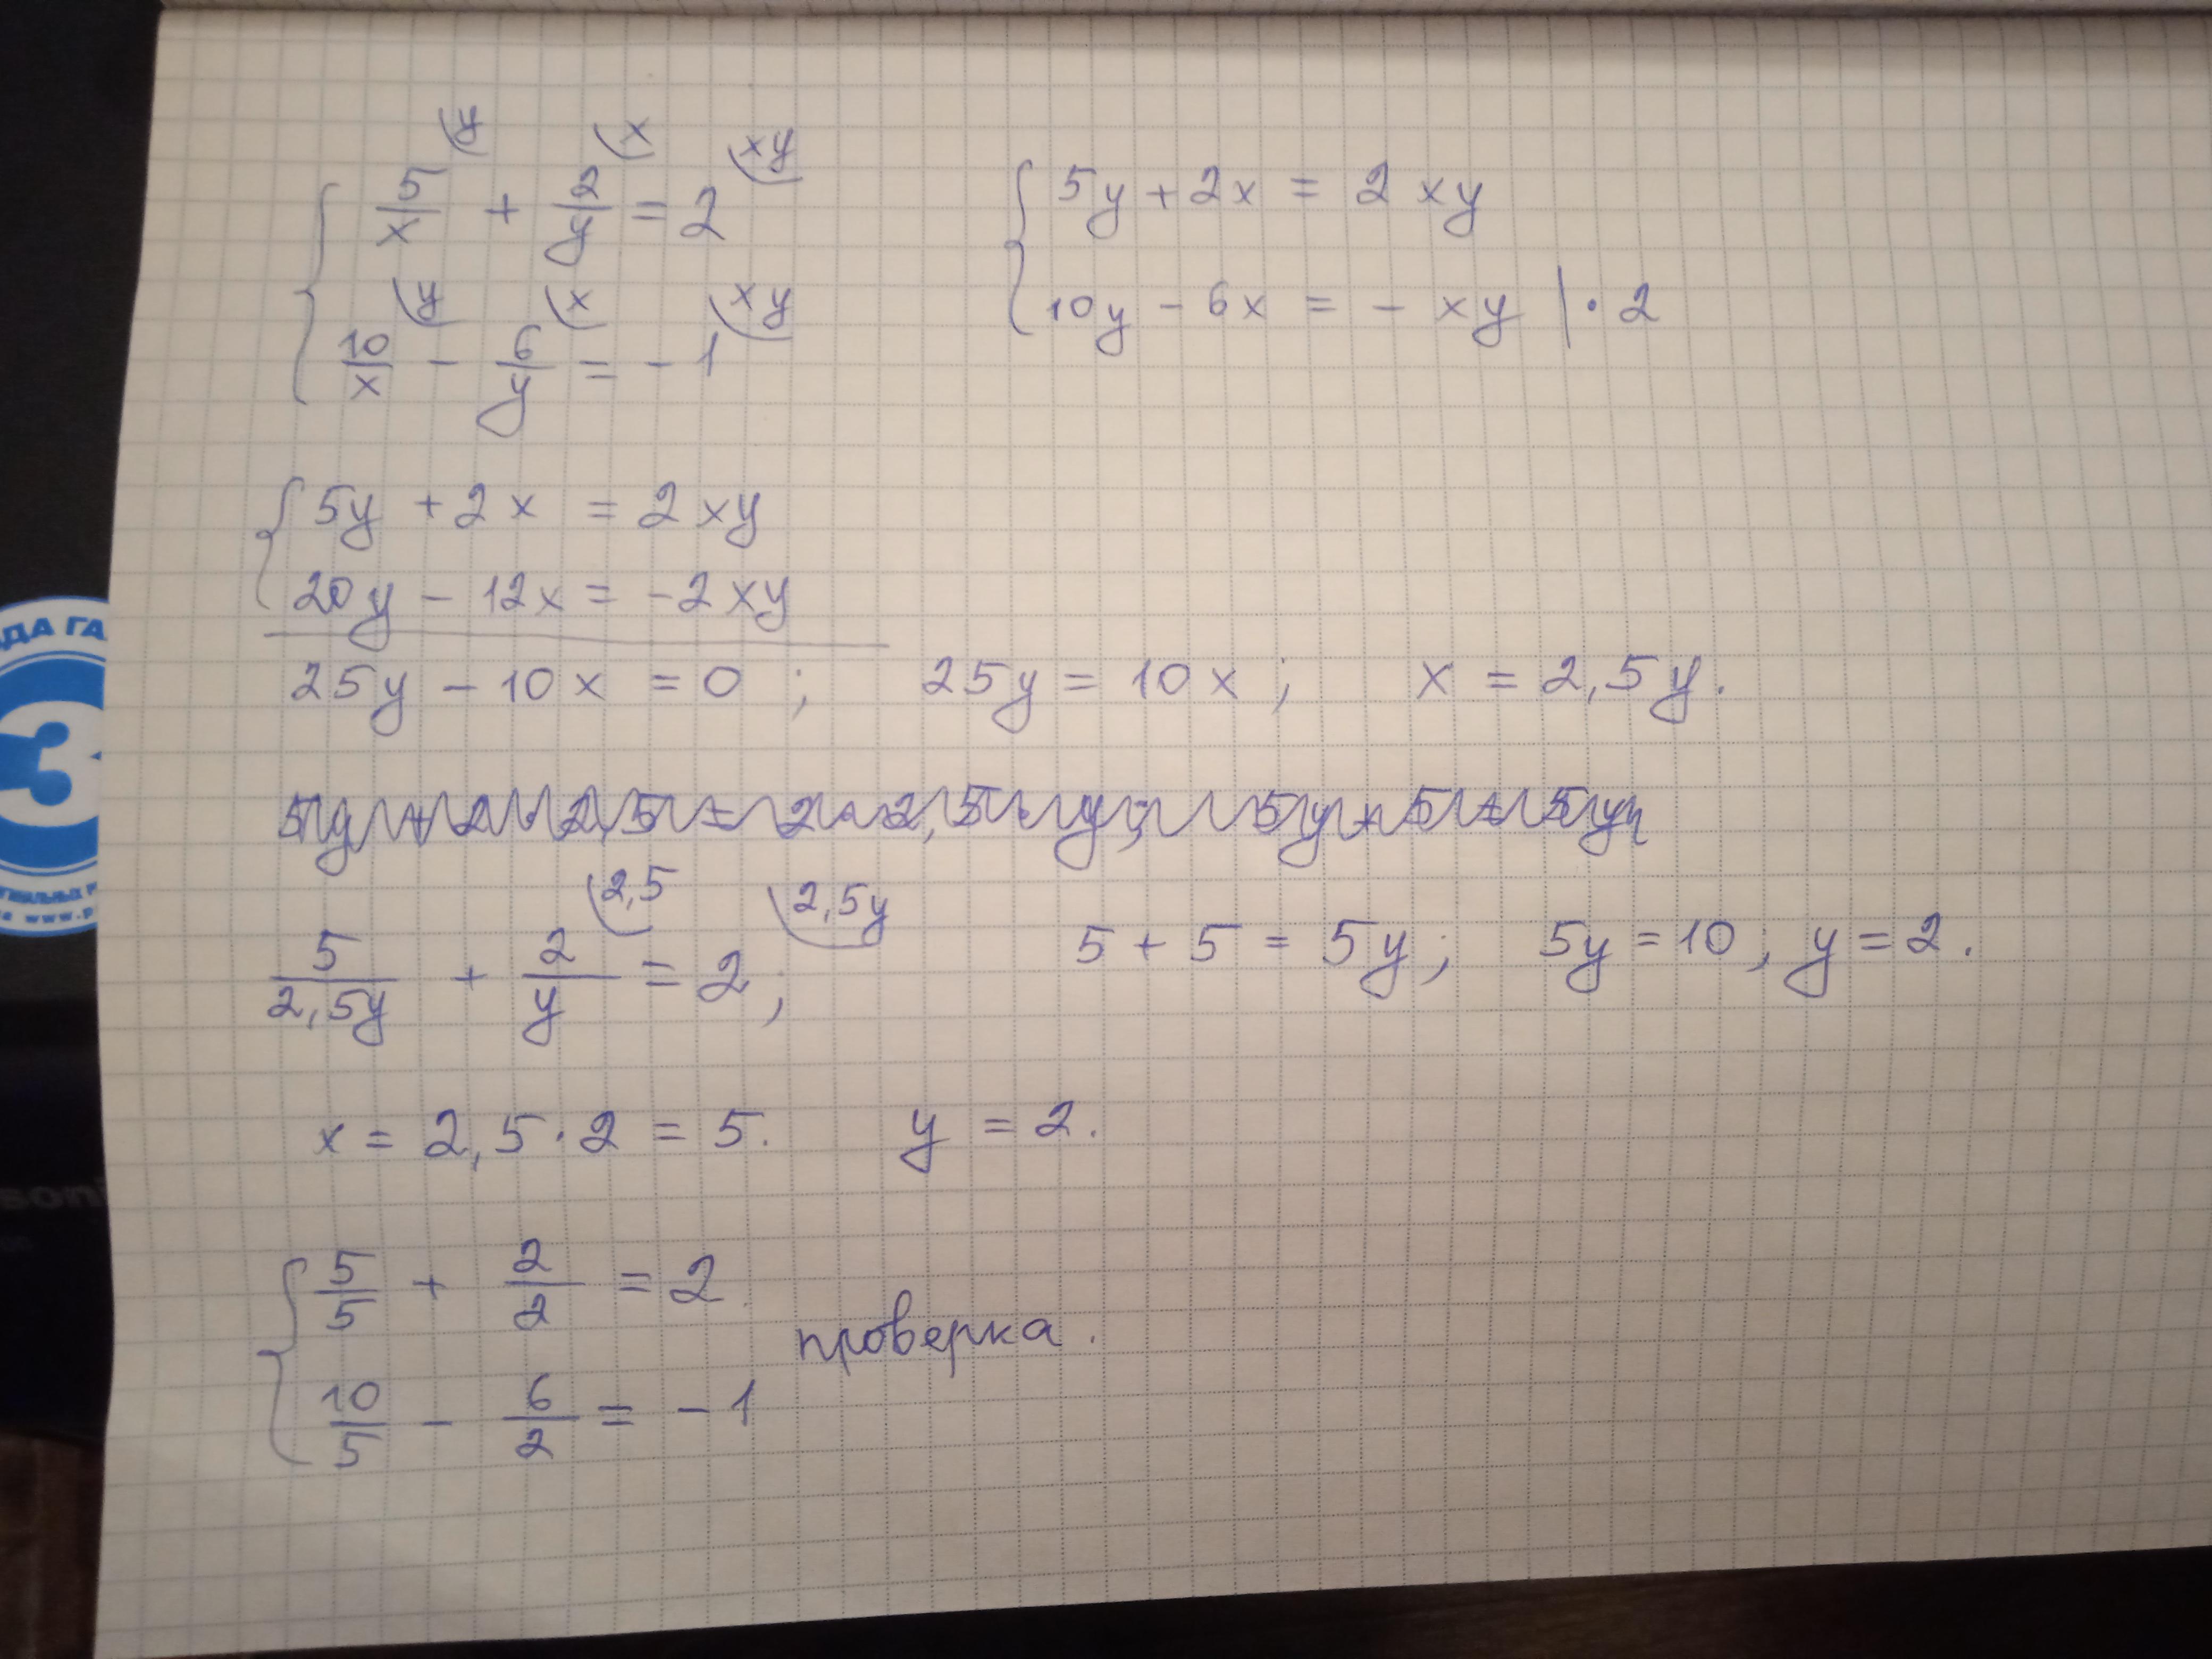 5/x (y + 2/y (x = 2 (xy
10/x (y − 6/y (x = −1 (xy
5y + 2x = 2xy
10y − 6x = − xy | · 2
5y + 2x = 2xy
20y − 12x = −2xy
25y − 10x = 0 ; 25y = 10x ; x = 2,5y.
5y + 2 · 2,5 = 2 · 2,5 · y ; 5y + 5 = 5y
5/2,5y + 2/y (2,5 = 2 (2,5y ; 5 + 5 = 5y ; 5y = 10 ; y = 2.
x = 2,5 · 2 = 5. y = 2.
5/5 + 2/2 = 2
10/5 − 6/2 = −1
проверка.
ДА ГА
З
www.p
soni